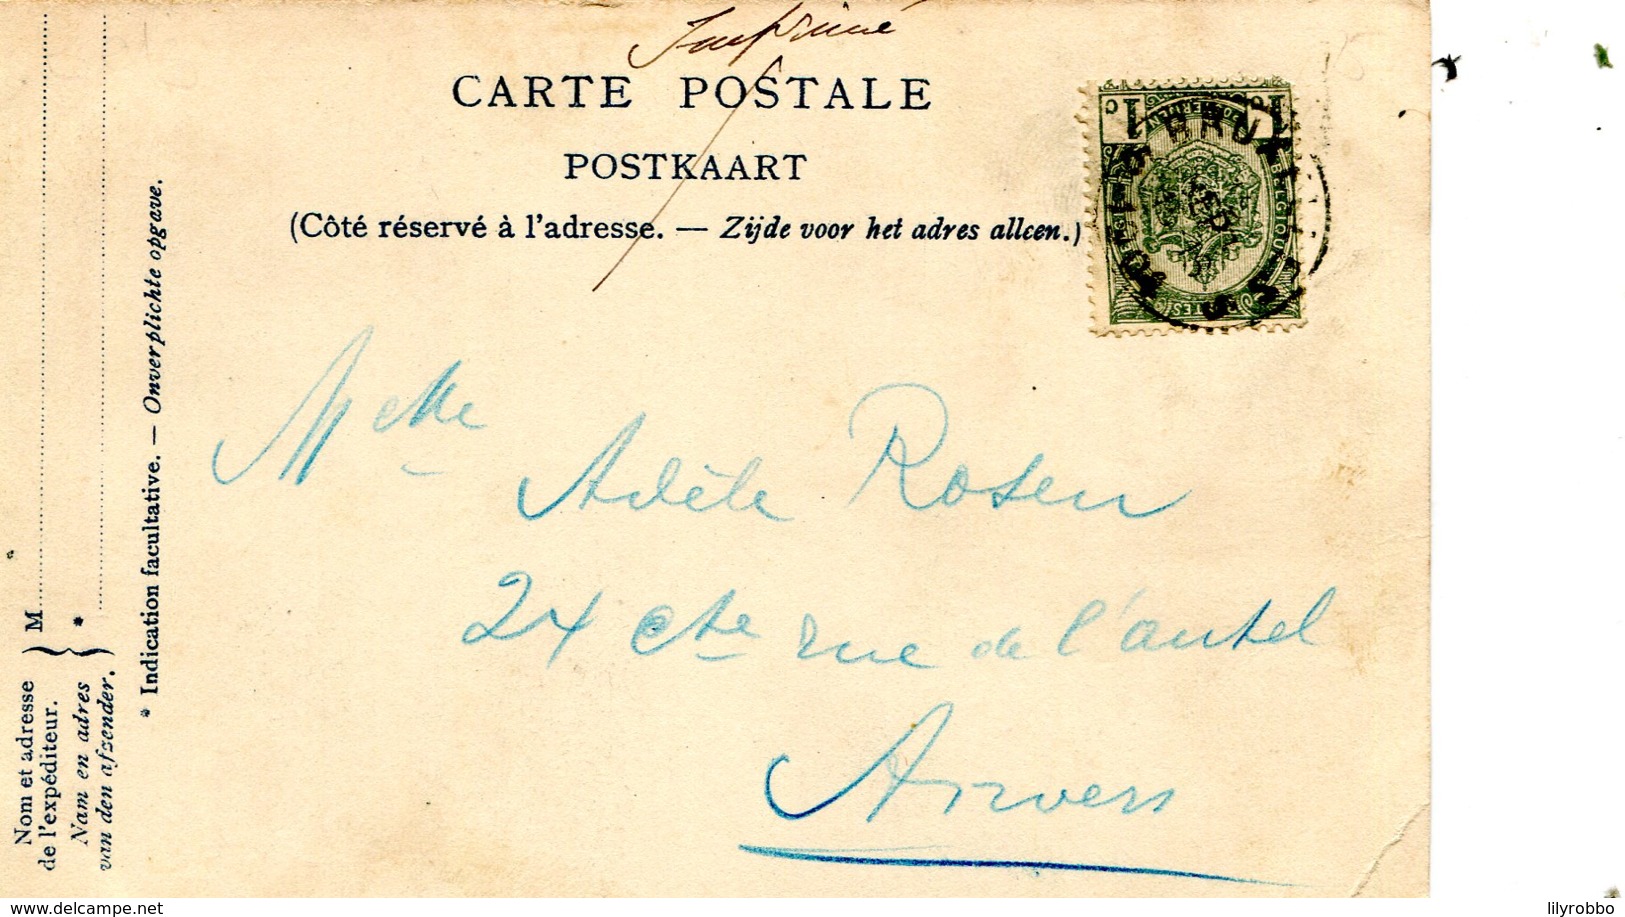 Imprimé
CARTE POSTALE
POSTKAART
(Côté réservé à l'adresse. — Zijde voor het adres alleen.)
1 C 1 C
Melle
Adèle Rosen
24 Cte rue de l'autel
Anvers
Nom et adresse
de l'expéditeur.
Nam en adres
van den afzender.
} M
} *
* Indication facultative. — Onverplichte opgave.
lilyrobbo